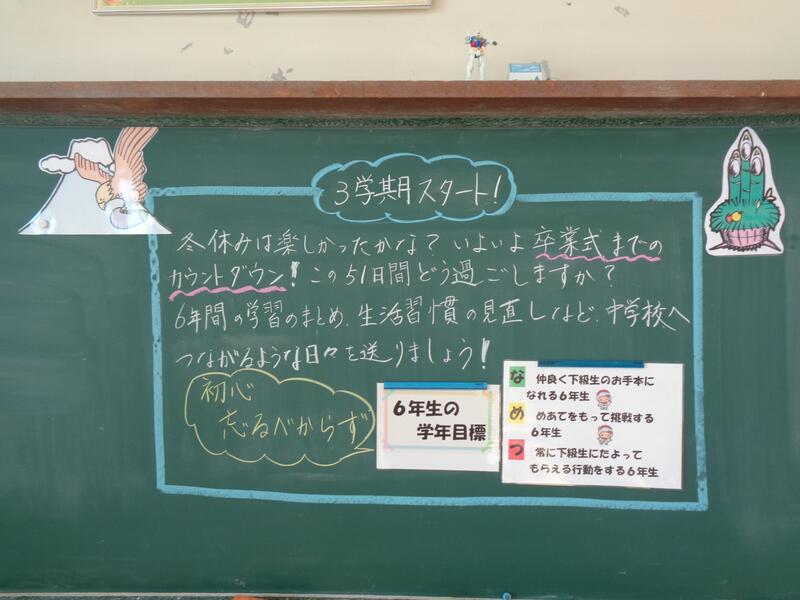 3学期スタート!
冬休みは楽しかったかな?いよいよ卒業式までの
カウントダウン!この51日間どう過ごしますか?
6年間の学習のまとめ、生活習慣の見直しなど、中学校へ
つながるような日々を送りましょう!
初心
忘るべからず
6年生の
学年目標
な 仲良く下級生のお手本に
なれる6年生
め めあてをもって挑戦する
6年生
つ 常に下級生にたよって
もらえる行動をする6年生